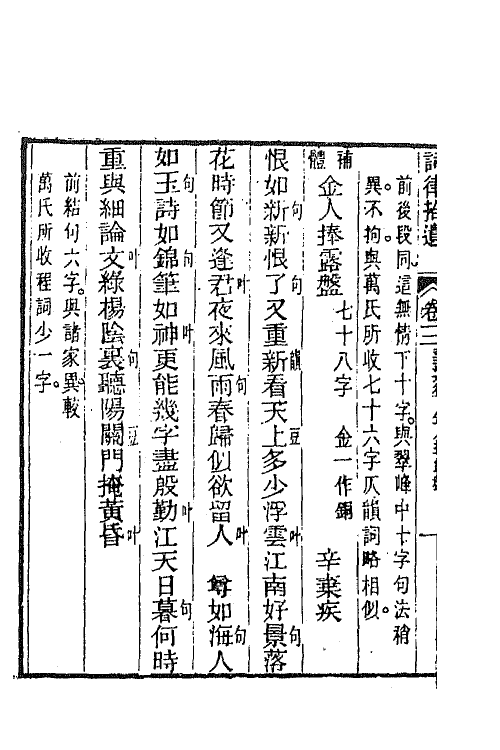 詞律拾遺 卷三
前後段同這無情下十字。與翠峰中七字句法稍
異。不拘與萬氏所收七十六字仄韻詞略相似。
補體 金人捧露盤 七十八字 金一作銅 辛棄疾
恨如新句新恨了句又重新韻看天上豆多少浮雲叶江南好句景落
花時節又逢君叶夜來風雨句春歸似欲留人叶 罇如海句人
如玉句詩如錦句筆如神叶更能幾字盡殷勤叶江天日暮句何時
重與細論文叶綠楊陰裏句聽陽關豆門掩黃昏叶
前結句六字。與諸家異。較
萬氏所收程詞少一字。